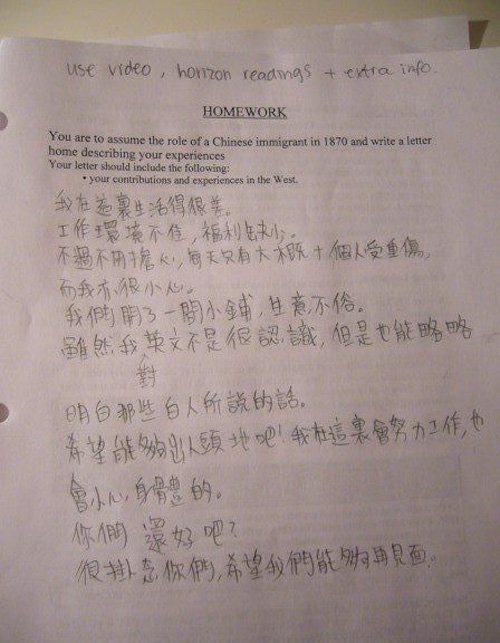 use video, horizon readings + extra info.
HOMEWORK
You are to assume the role of a Chinese immigrant in 1870 and write a letter
home describing your experiences
Your letter should include the following:
• your contributions and experiences in the West.
我在這裏生活得很差。
工作環境不佳,福利缺少。
不過不用擔心,每天只有大概十個人受重傷,
而我亦很小心。
我們開了一間小鋪,生意不俗。
雖然我英文不是很認識,但是也能略略
對
明白那些白人所說的話。
希望能夠出人頭地吧!我在這裏會努力工作,也
會小心身體的。
你們還好吧?
很掛念你們,希望我們能夠再見面。